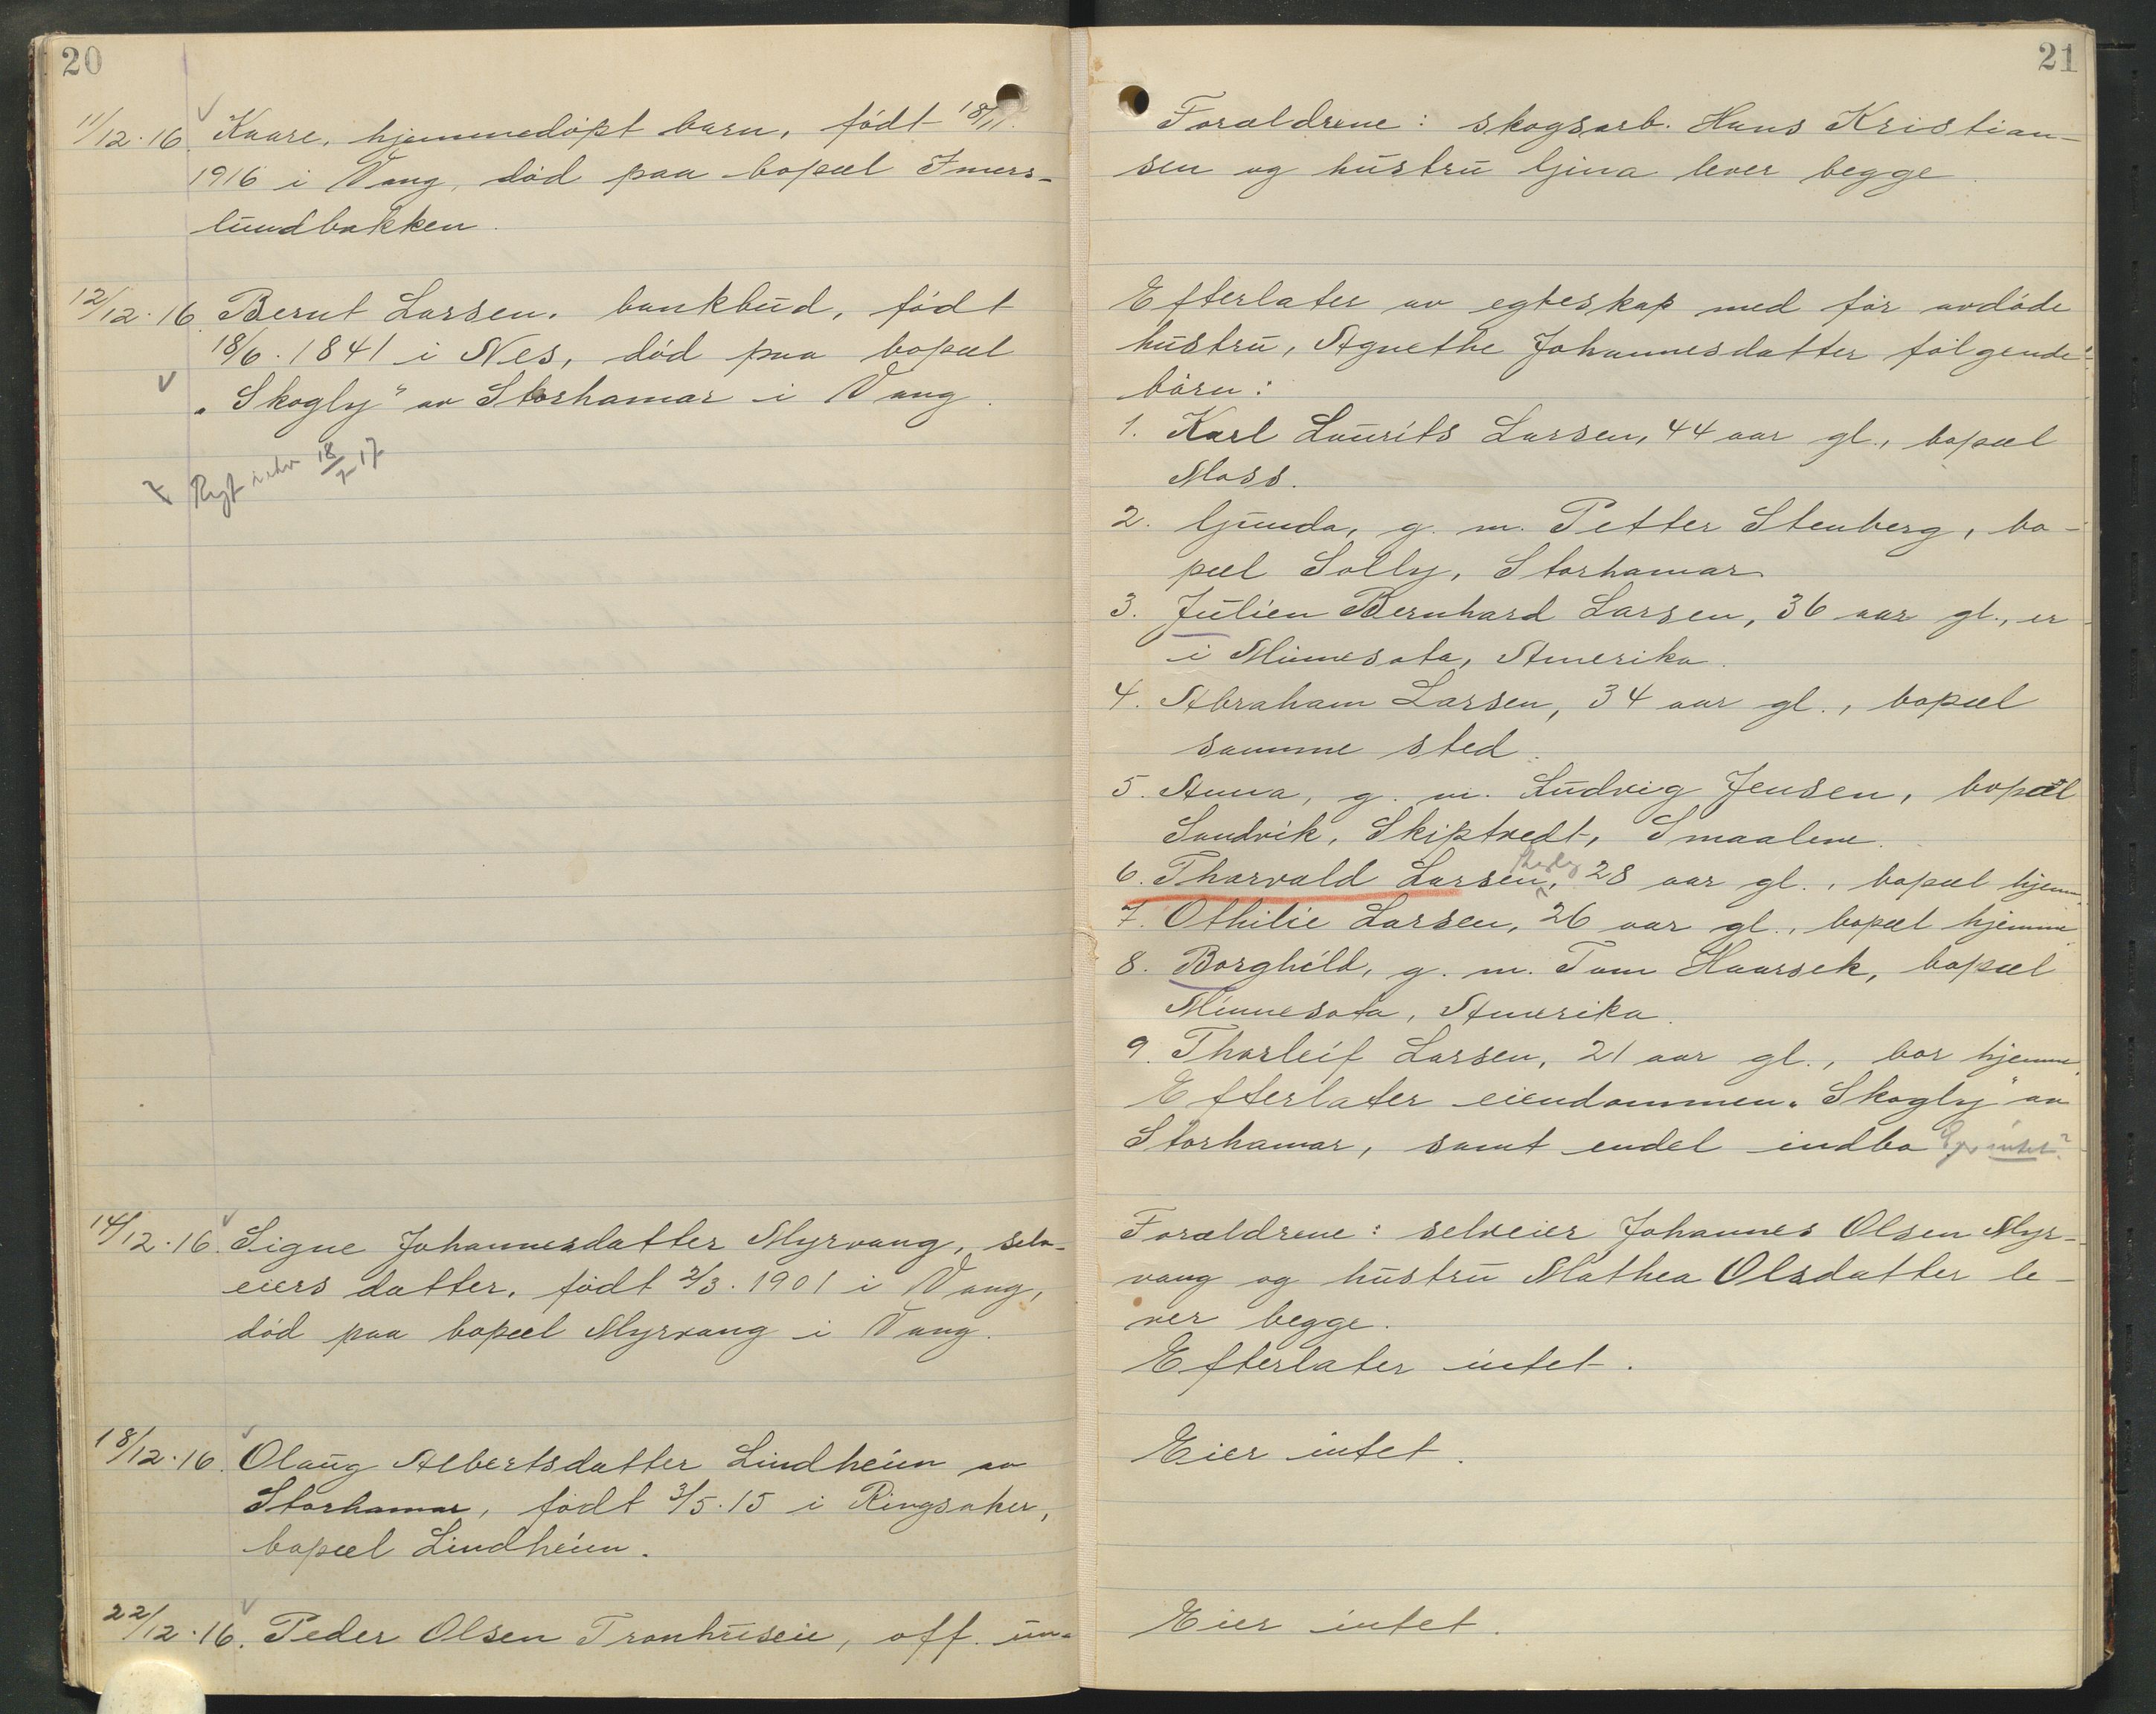 20
11/12.16. Kaare, hjemmedøpt barn, født 18/11.
1916 i Vang, død paa bopæl Imers-
lundbakken.
12/12.16. Bernt Larsen, bankbud, født
18/6.1841 i Nes, død paa bopæl
„Skogly" av Storhamar i Vang.
18/7 17
14/12.16. Signe Johannesdatter Myrvang, selv-
eiers datter, født 2/3.1901 i Vang,
død paa bopæl Myrvang i Vang.
18/12.16. Olaug Albertsdatter Lindheim av
Storhamar, født 3/5.15 i Ringsaker,
bopæl Lindheim.
22/12.16. Peder Olsen Tronhuseie, off. un-
21
Forældrene: skogsarb. Hans Kristian-
sen og hustru Gina lever begge.
Efterlater av egteskap med før avdøde
hustru, Agnethe Johannesdatter følgende
børn:
1. Karl Laurits Larsen, 44 aar gl., bopæl
Moss.
2. Gunda, g. m. Petter Stenberg, bo-
pæl Solly, Storhamar
3. Julien Bernhard Larsen, 36 aar gl., er
i Minnesota, Amerika.
4. Abraham Larsen, 34 aar gl., bopæl
samme sted.
5. Anna, g. m. Ludvig Jensen, bopæl
Sandvik, Skiptvedt, Smaalene.
6. Thorvald Larsen, 28 aar gl., bopæl hjem
7. Othilie Larsen, 26 aar gl., bopæl hjemme
8. Borghild, g. m. Tom Haarsek, bopæl
Minnesota, Amerika.
9. Thorleif Larsen, 21 aar gl., bor hjemme.
Efterlater eiendommen „Skogly" av
Storhamar, samt endel indbo
Forældrene: selveier Johannes Olsen Myr-
vang og hustru Mathea Olsdatter le-
ver begge.
Efterlater intet.
Eier intet.
Eier intet.